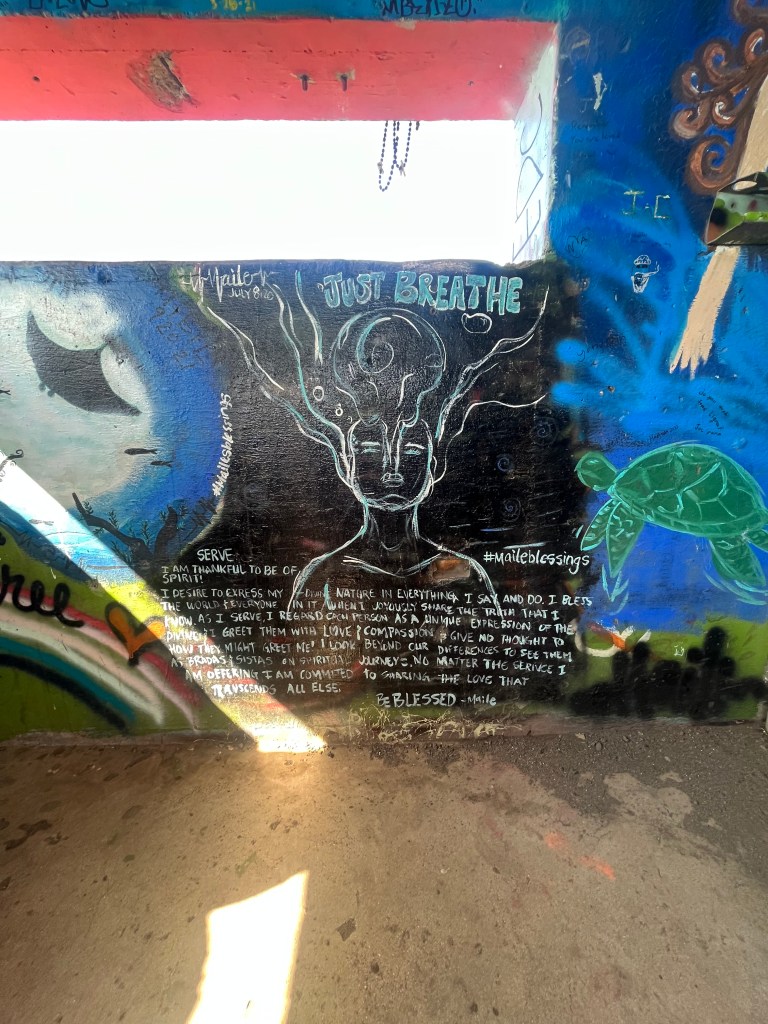 3-10-21
EDC
I-C
Maile
JULY 8th 20
JUST BREATHE
#Maileblessings
#Maileblessings
free
SERVE
I AM THANKFUL TO BE OF
SPIRIT!
I DESIRE TO EXRESS MY NATURE IN EVERYTHING I SAY AND DO. I BLESS
THE WORLD & EVERYONE IN IT WHEN I JOYOUSLY SHARE THE TRUTH THAT I
KNOW. AS I SERVE, I REGARD EACH PERSON AS A UNIQUE EXPRESSION OF THE
DIVINE. I GREET THEM WITH LOVE & COMPASSION & GIVE NO THOUGHT TO
HOW THEY MIGHT GREET ME! I LOOK BEYOND OUR DIFFERENCES TO SEE THEM
AS BRADAS & SISTAS ON SPIRITUAL JOURNEYS. NO MATTER THE SERVICE I
AM OFFERING I AM COMMITED TO SHARING THE LOVE THAT
TRANSCENDS ALL ELSE.
BE BLESSED - Maile